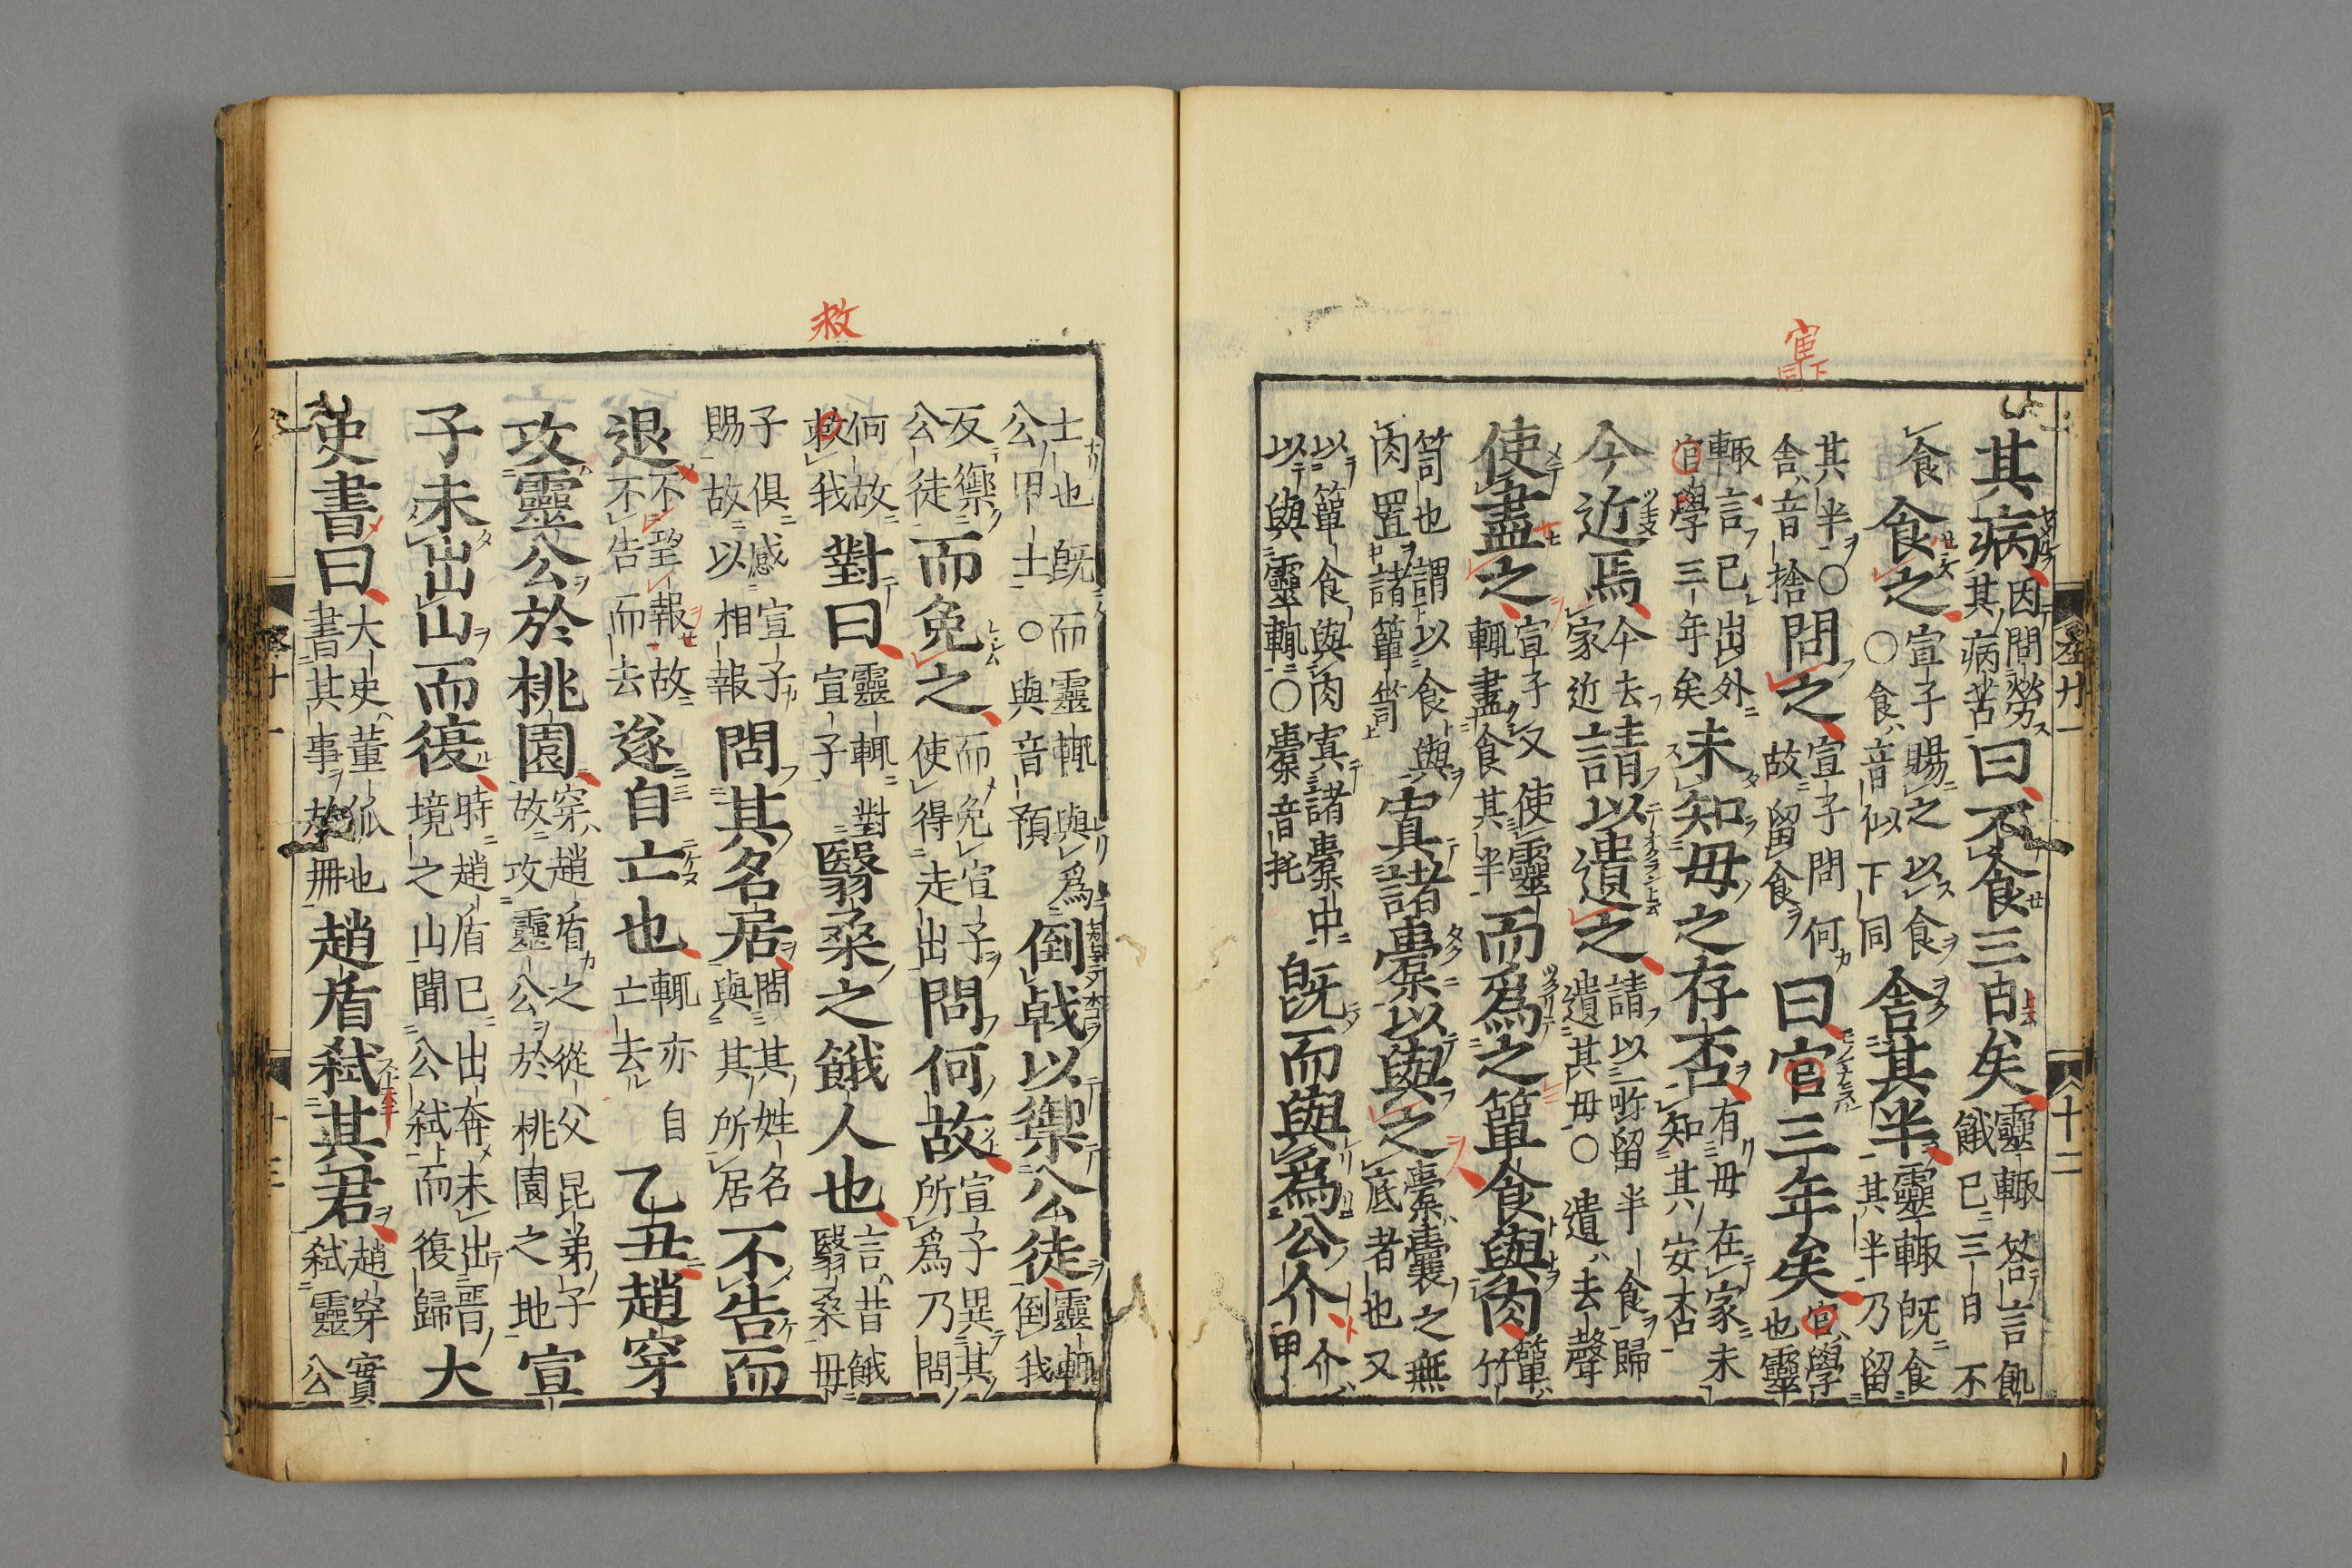 其病因問勞其病苦曰不食三日矣靈輒答言飢餓已三日不
食食之宣子賜之以食○食音似下同舍其半靈輒旣食其半乃留
其半○舍音捨問之宣子問何故留食曰官三年矣官學也靈
輒言已出外官學三年矣未知毋之存否有毋在家未知其安否
今近焉今去家近請以遺之請以所留半食歸遺其毋○遺去聲
使盡之宣子又使靈輒盡食其半而爲之簞食與肉簞竹
笥也謂以食與肉置諸簞笥寘諸橐以與之橐囊之無底者也又
以簞食與肉寘諸橐中以與靈輒○橐音托旣而與爲公介介甲
士也旣而靈輒與爲公甲士○與音預倒戟以禦公徒靈輒倒戟
反禦公徒而免之而免宣子使得走出問何故宣子異其所爲乃問
何故救我對曰靈輒對宣子翳桑之餓人也言昔餓翳桑毋
子俱感宣子賜故以相報問其名居問其姓名與其所居不告而
退不望報故不告而去遂自亡也輒亦自亡去乙丑趙穿
攻靈公於桃園穿趙盾之從父昆弟子故攻靈公於桃園之地宣
子未出山而復時趙盾已出奔未出晉境之山聞公弑而復歸大
史書曰大史董狐也書其事於冊趙盾弑其君趙穿實弑靈公
救
宦下同
卷廿一
十二
十三